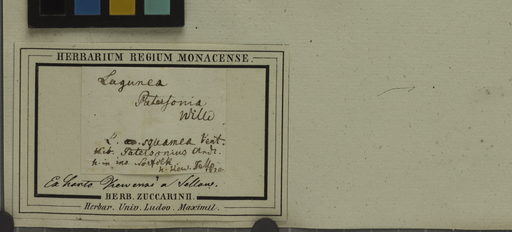 HERBARIUM REGIUM MONACENSE.
Lagunea
Patersonia
Willd
L. squamea Vent.
Hib. Patersonius Andr.
h. in ins. Norfolk
Ex horto a
HERB. ZUCCARINII.
Herbar. Univ. Ludov. Maximil.